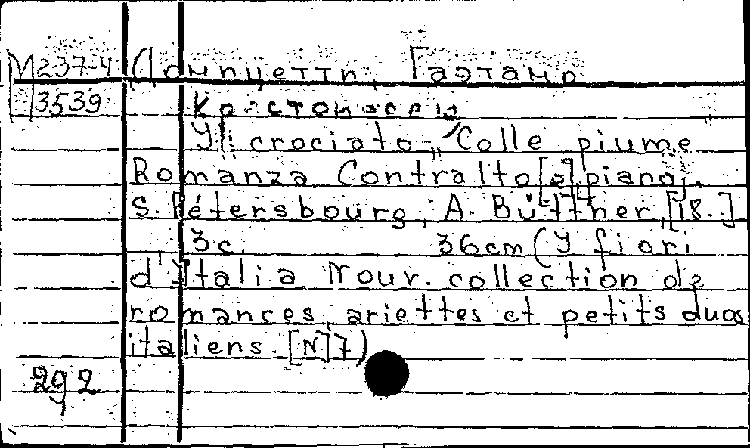 М237-4 Доницетти, Гаэтано
3539 Крестоносец
Il crociato. „Colle piume
Romanza Contralto [e] piano.
S. Pétersbourg, A. Büttner, [18..]
3с. 36cm (I fiori
d'Italia Nouv. collection de
romances, ariettes et petits duos
italiens. [N] 7)
292